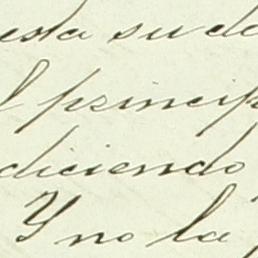 esta su da
l princip
diciendo
Y no la